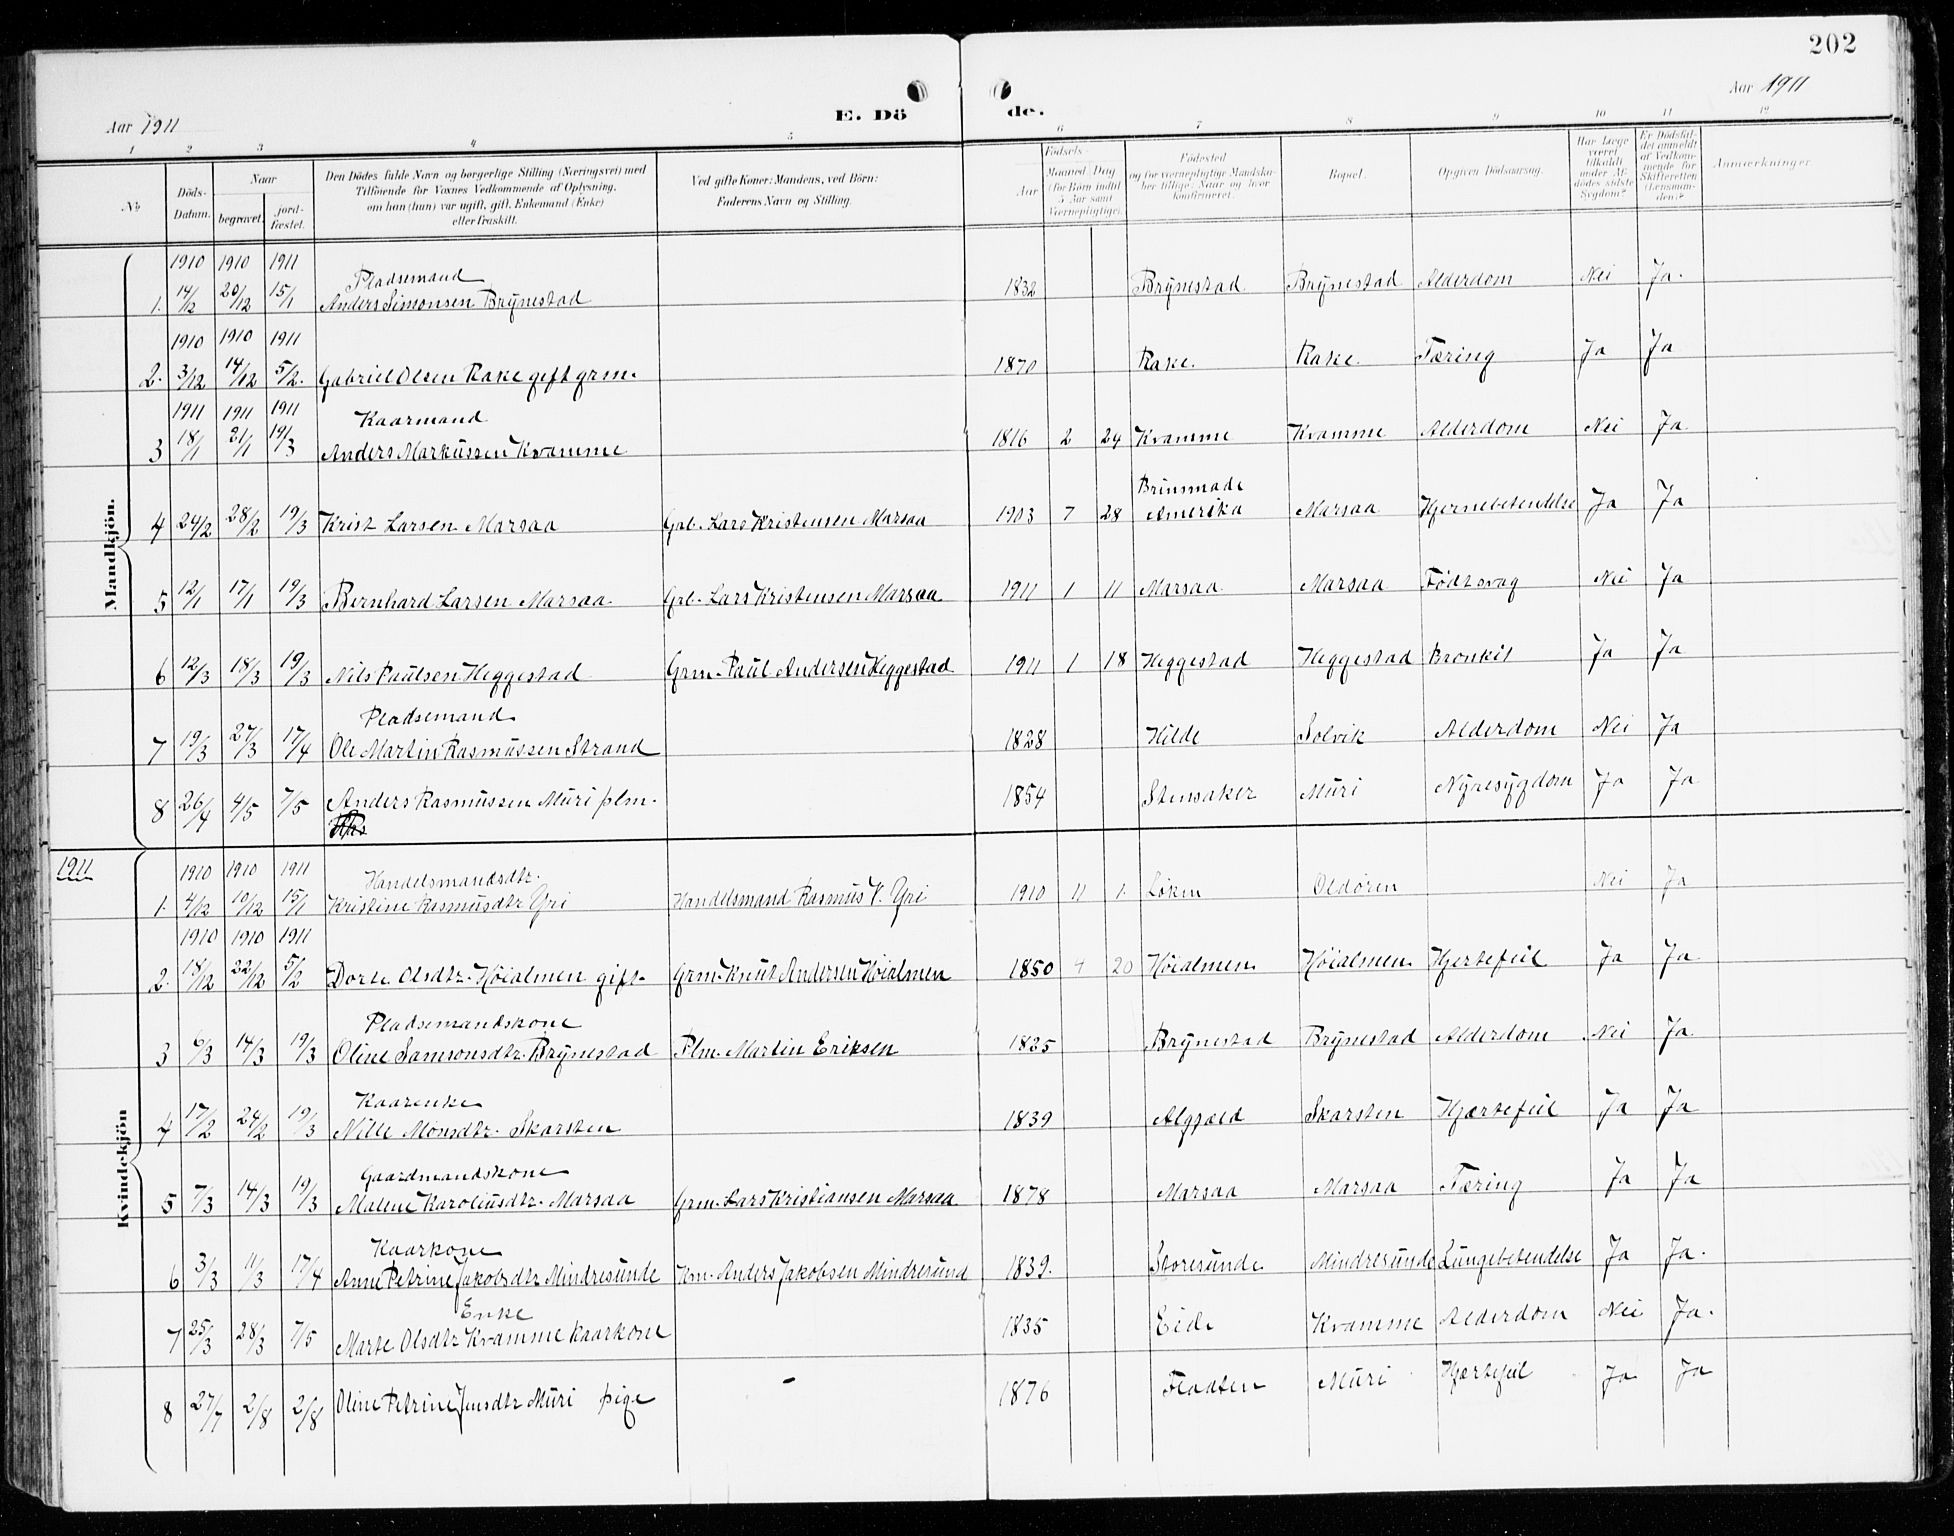 202
Aar 1911
E. Döde.
Aar 1911
1 2 3 4 5 6 7 8 9 10 11 12
No
Döds-Datum.
Naar
begravet.
jord-fæstet.
Den Dödes fulde Navn og borgerlige Stilling (Næringsvei) med
Tilföiende for Voxnes Vedkommende af Oplysning,
om han (hun) var ugift, gift, Enkemand (Enke)
eller fraskilt.
Ved gifte Koner: Mandens, ved Börn:
Faderens Navn og Stilling.
Födsels-
Aar
Maaned, Dag
(for Börn indtil
5 Aar samt
Værnepligtige).
Födested
og for værnepligtige Mandska-
ber tillige: Naar og hvor
konfirmeret.
Bopæl.
Opgiven Dödsaarsag.
Har Læge
været
tilkaldt
under Af-
dödes sidste
Sygdom?
Er Dödsfal-
det anmeldt
af Vedkom-
mende for
Skifteretten
(Lensman-
den)?
Anmærkninger.
Mandkjön.
1910 1910 1911 Pladsemand
1. 14/12 20/12 15/1 Anders Simonsen Brynestad 1832 Brynestad Brynestad Alderdom Nei Ja.
1910 1910 1911
2. 3/12 14/12 5/2. Gabriel Olsen Rake gift grm. 1870 Rake. Rake. Tæring Ja Ja
1911 1911 1911 Kaarmand
3 18/1 21/1 19/3 Anders Markussen Kvamme 1816 2 24 Kvamme Kvamme Alderdom Nei Ja
Brinsmade
4 24/2 28/2 19/3 Krist Larsen Marsaa Gbr. Lars Kristensen Marsaa 1903 7 28 Amerika Marsaa Hjernebetendelse Ja Ja
5 12/1 17/1 19/3 Bernhard Larsen Marsaa Gbr. Lars Kristensen Marsaa 1911 1 11 Marsaa Marsaa Födtsvag Nei Ja
6 12/3 18/3 19/3 Nils Paulsen Heggestad Grm. Paul Andersen Heggestad 1911 1 18 Heggestad Heggestad Bronkit Ja Ja
Pladsemand
7 19/3 27/3 17/4 Ole Martin Rasmussen Strand 1828 Hilde Solvik Alderdom Nei Ja
8 26/4 4/5 7/5 Anders Rasmussen Muri plm. 1854 Stensaker Muri Nyresygdom Ja Ja
1911
Kvindekjön
1910 1910 1911 Handelsmandsdtr.
1. 4/12 10/12 15/1 Kristine Rasmusdtr Yri Handelsmand Rasmus K. Yri 1910 11 1. Løken Oldøren Nei Ja
1910 1910 1911
2. 18/12 22/12 5/2 Dorte Olsdtr. Høialmen gift. Grm. Knut Andersen Høialmen 1850 4 20 Høialmen Høialmen Hjertefeil Ja Ja
Pladsemandskone
3 6/3 14/3 19/3 Oline Samsonsdtr. Brynestad Plm. Martin Eriksen 1825 Brynestad Brynestad Alderdom Nei Ja
Kaarenke
4 17/2 24/2 19/3 Nille Monsdtr. Skarsten 1839 Algjæld Skarsten Hjærtefeil Ja Ja
Gaardmandskone
5 7/3 14/3 19/3 Malene Karoliusdtr. Marsaa Grm. Lars Kristiansen Marsaa 1878 Marsaa Marsaa Tæring Ja Ja
Kaarkone
6 3/3 11/3 17/4 Anne Petrine Jakobsdtr Mindresunde Km. Anders Jakobsen Mindresund 1839. Storesunde Mindresunde Lungebetendelse Ja Ja.
Enke
7 25/3 28/3 7/5 Marte Olsdtr Kvamme kaarkone 1835 Eide Kvamme Alderdom Nei Ja.
8 27/7 2/8 2/8 Oline Petrine Jensdtr Muri pige - 1876 Flaaten Muri Hjærtefeil Ja Ja